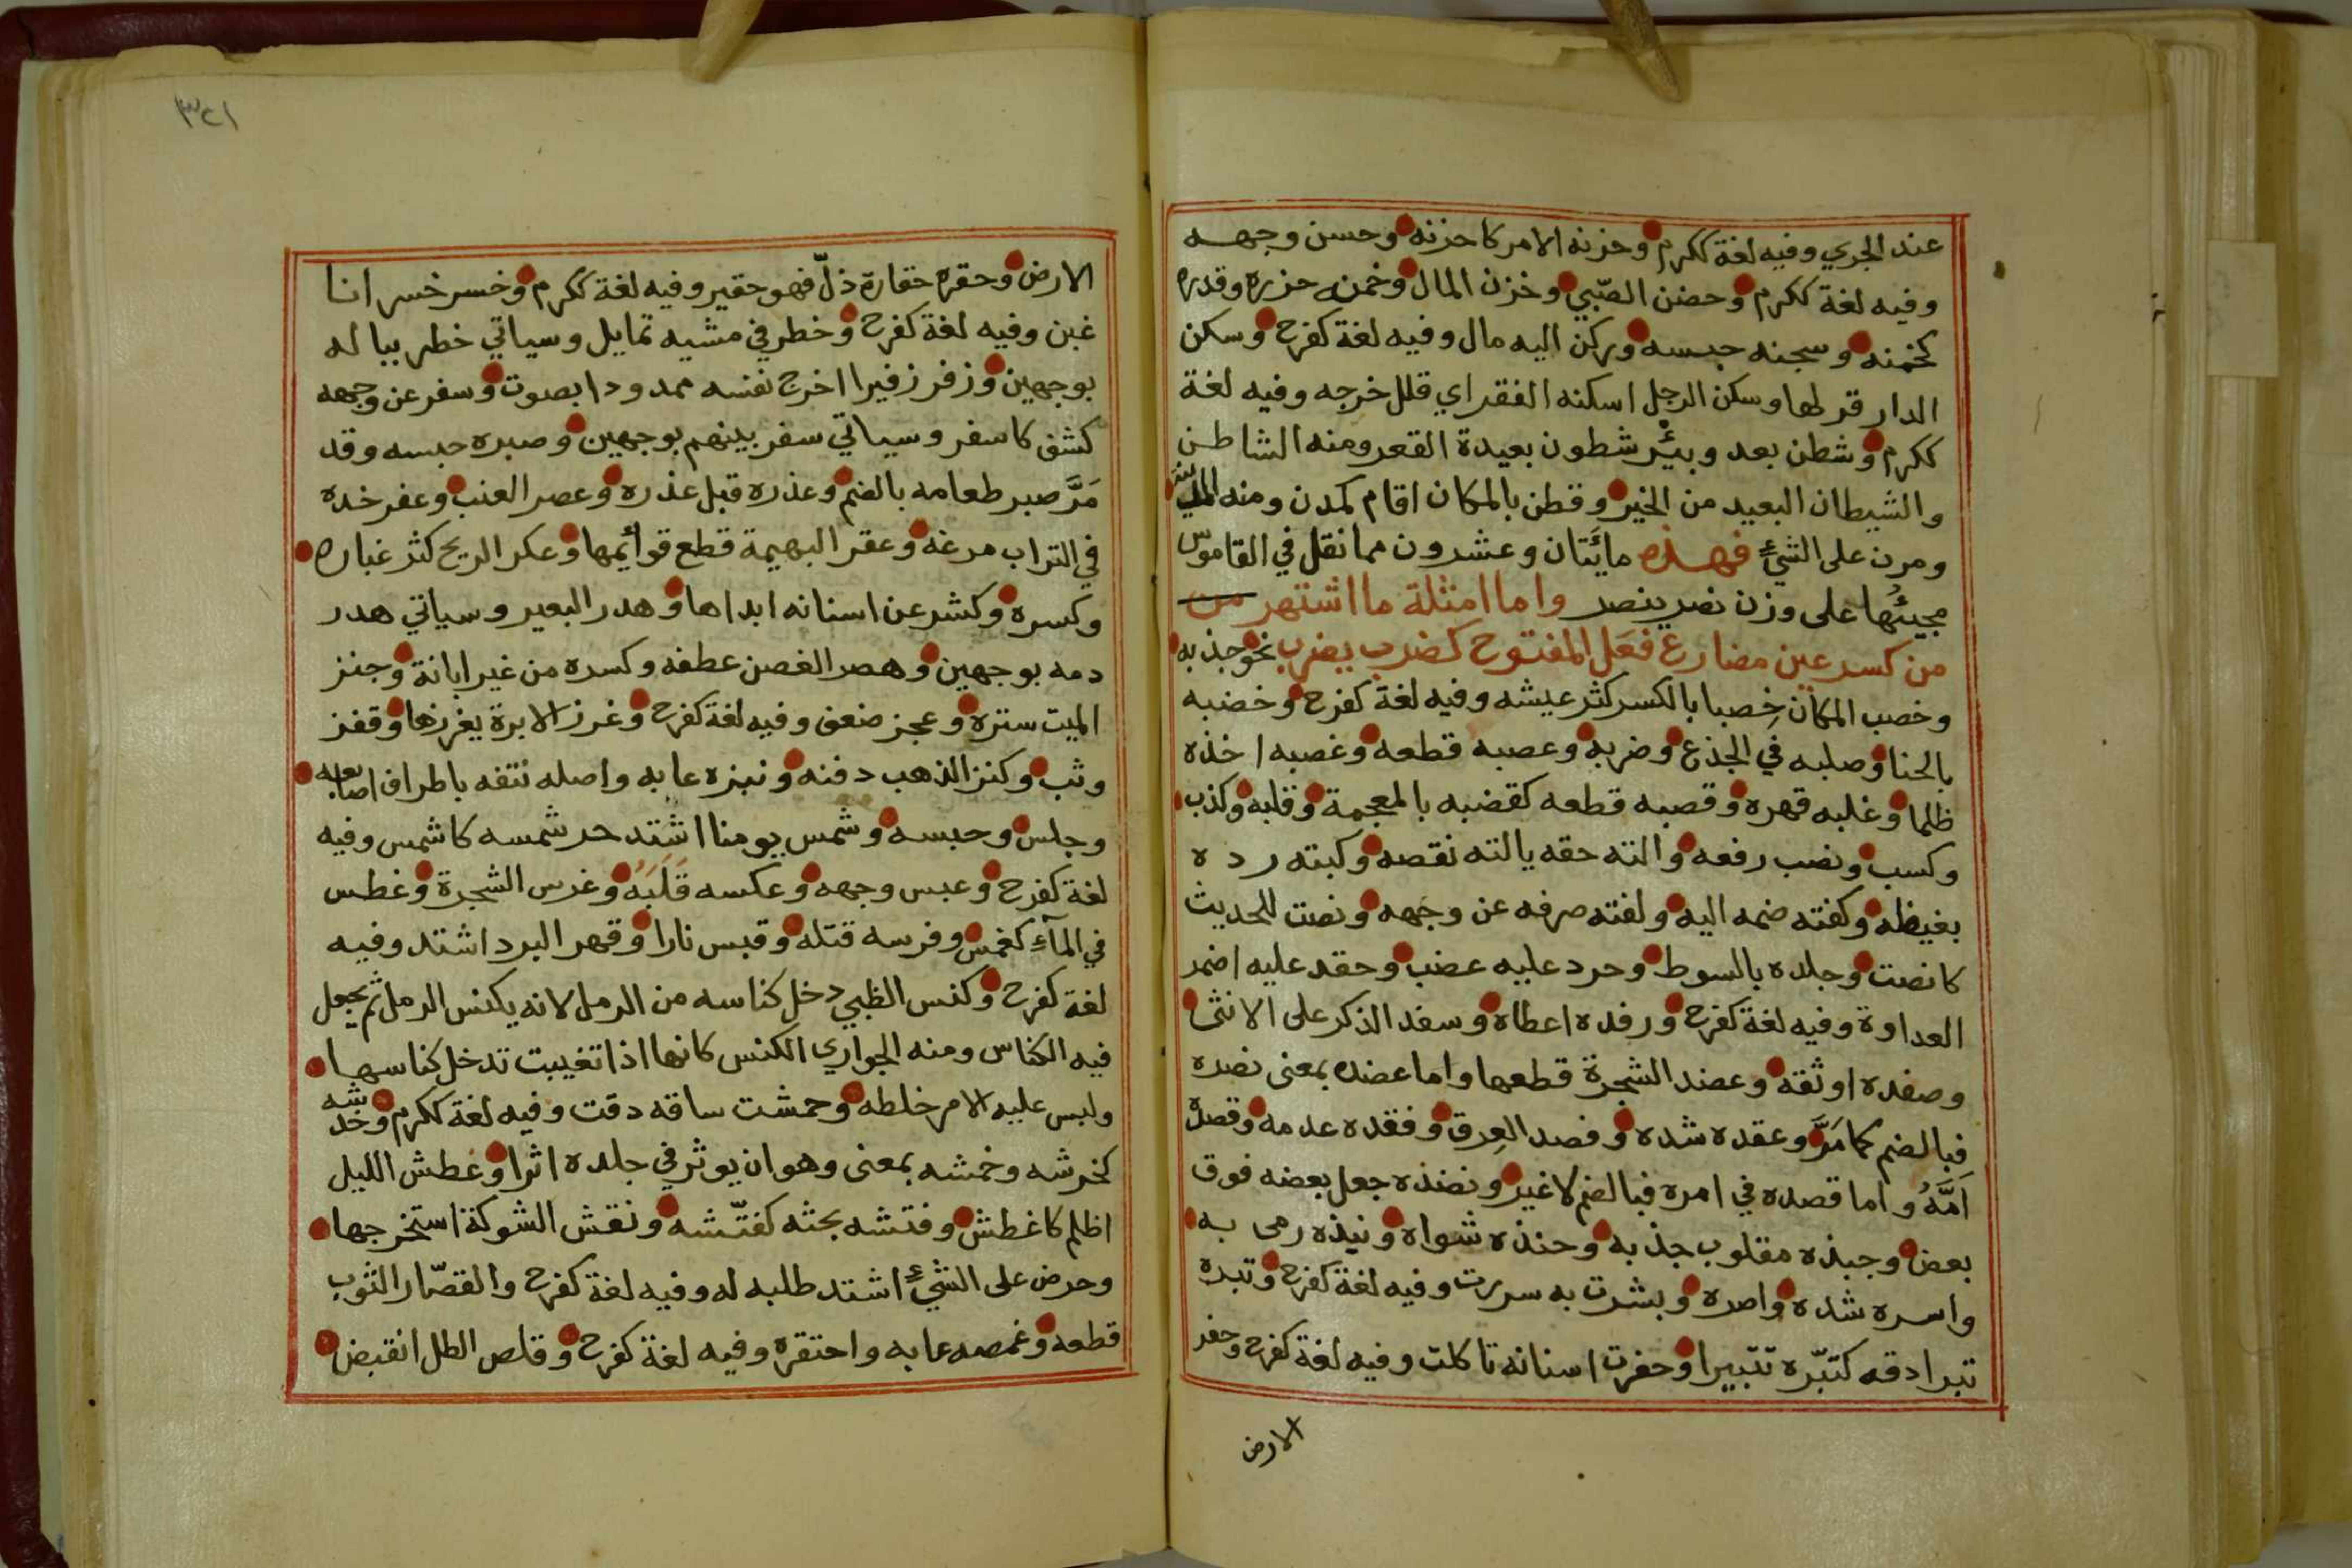 عند الجري وفيه لغة ككرم وحزنه الامر كاحزنه وحسن وجهه
وفيه لغة ككرم وحضن الصّبي وخزن المال وخمنه حزره وقدره
كخمنه وسجنه حبسه وركن اليه مال وفيه لغة كفرح وسكن
الدار قر لها وسكن الرجل اسكنه الفقر اي قلل خرجه وفيه لغة
ككرم وشطن بعد وبئر شطون بعيدة القعر ومنه الشاطن
والشيطان البعيد من الخير وقطن بالمكان اقام كمدن ومنه
ومرن على الشيء فهذه مائتان وعشرون مما نقل في القاموس
مجيئها على وزن نصر ينصر واما امثلة ما اشتهر من
من كسر عين مضارع فعَل المفتوح كضرب يضرب نحو جذبه
وخصب المكان خِصبا بالكسر كثر عيشه وفيه لغة كفرح وخضبه
بالحنا وصلبه في الجذع وضربه وعصبه قطعه وغصبه اخذه
ظلما وغلبه قهره وقصبه قطعه كقضبه بالمعجمة وقلبه وكذب
وكسب ونصب رفعه والته حقه يالته نقصه وكبته رده
بغيظه وكفته ضمه اليه ولفته صرفه عن وجهه ونصت للحديث
كانصت وجلده بالسوط وحرد عليه غضب وحقد عليه اضمر
العداوة وفيه لغة كفرح ورفده اعطاه وسفد الذكر على الانثى
وصفده اوثقه وعضد الشجرة قطعها واما عضده بمعنى نصره
فبالضم كما مَرَّ وعقده شده وفصد العِرق وفقده عدمه وقصده
اَمَّهُ واما قصده في امره فبالضم لا غير ونضده جعل بعضه فوق
بعض وجبذه مقلوب جذبه وحنذه شواه ونبذه رمى به
واسره شده واصره وبشرت به سررت وفيه لغة كفرح وتبره
تبرا دقه كتبّره تتبيرا وحفرت اسنانه تاكلت وفيه لغة كفرح وحفر
الارض
٣٢١
الارض وحقره حقارة ذلّ فهو حقير وفيه لغة ككرم وخسر خسرانا
غبن وفيه لغة كفرح وخطر في مشيه تمايل وسياتي خطر بباله
بوجهين وزفر زفيرا اخرج نفسه ممدودا بصوت وسفر عن وجهه
كشف كاسفر وسياتي سفر بينهم بوجهين وصبره حبسه وقد
مَرَّ صبر طعامه بالضم وعذره قبل عذره وعصر العنب وعفر خده
في التراب مرغه وعقر البهيمة قطع قوائمها وعكر الريح كثر غباره
وكسره وكشر عن اسنانه ابداها وهدر البعير وسياتي هدر
دمه بوجهين وهصر الغصن عطفه وكسره من غير ابانة وجنز
الميت ستره وعجز ضعف وفيه لغة كفرح وغرز الابرة يغرزها وقفز
وثب وكنز الذهب دفنه ونبزه عابه واصله نتفه باطراف اصابعه
وجلس وحبسه وشمس يومنا اشتد حر شمسه كاشمس وفيه
لغة كفرح وعبس وجهه وعكسه قَلَبَهُ وغرس الشجرة وغطس
في المآء كغمس وفرسه قتله وقبس نارا وقهر البرد اشتد وفيه
لغة كفرح وكنس الظبي دخل كناسه من الرمل لانه يكنس الرمل ثم يجعل
فيه الكناس ومنه الجواري الكنس كانها اذا تغيبت تدخل كناسها
ولبس عليه الامر خلطه وحمشت ساقه دقت وفيه لغة ككرم وخدشه
كخرشه وخمشه بمعنى وهو ان يوثر في جلده اثرا وغطش الليل
اظلم كاغطش وفتشه بحثه كفتّشه ونقش الشوكة استخرجها
وحرص على الشيء اشتد طلبه له وفيه لغة كفرح والقصّار الثوب
قطعه وغمصه عابه واحتقره وفيه لغة كفرح وقلص الظل انقبض